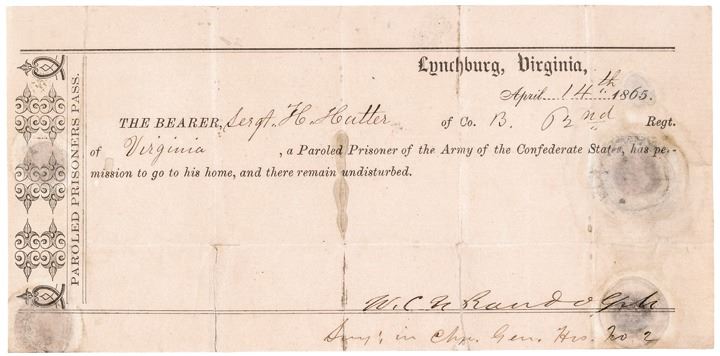 PAROLED PRISONERS PASS.
Lynchburg, Virginia,
April 14th 1865.
THE BEARER, Sergt. H. Hutter of Co. B. 2nd Regt.
of Virginia , a Paroled Prisoner of the Army of the Confederate States, has per-
mission to go to his home, and there remain undisturbed.
W. C. N. Randolph
Surg: in Chg. Gen. Hos. No 2